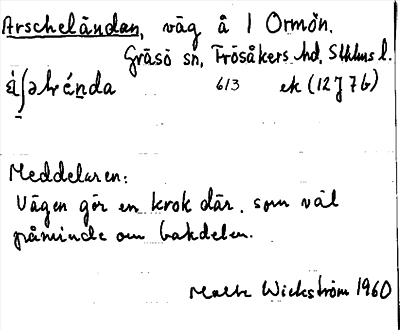 Arscheländan, väg å I Ormön.
Gräsö sn, Frösåkers hd, Sthlms l.
613 ek (12J 7b)
Meddelaren:
Vägen gör en krok där, som väl
påminde om bakdelen.
Malte Wickström 1960